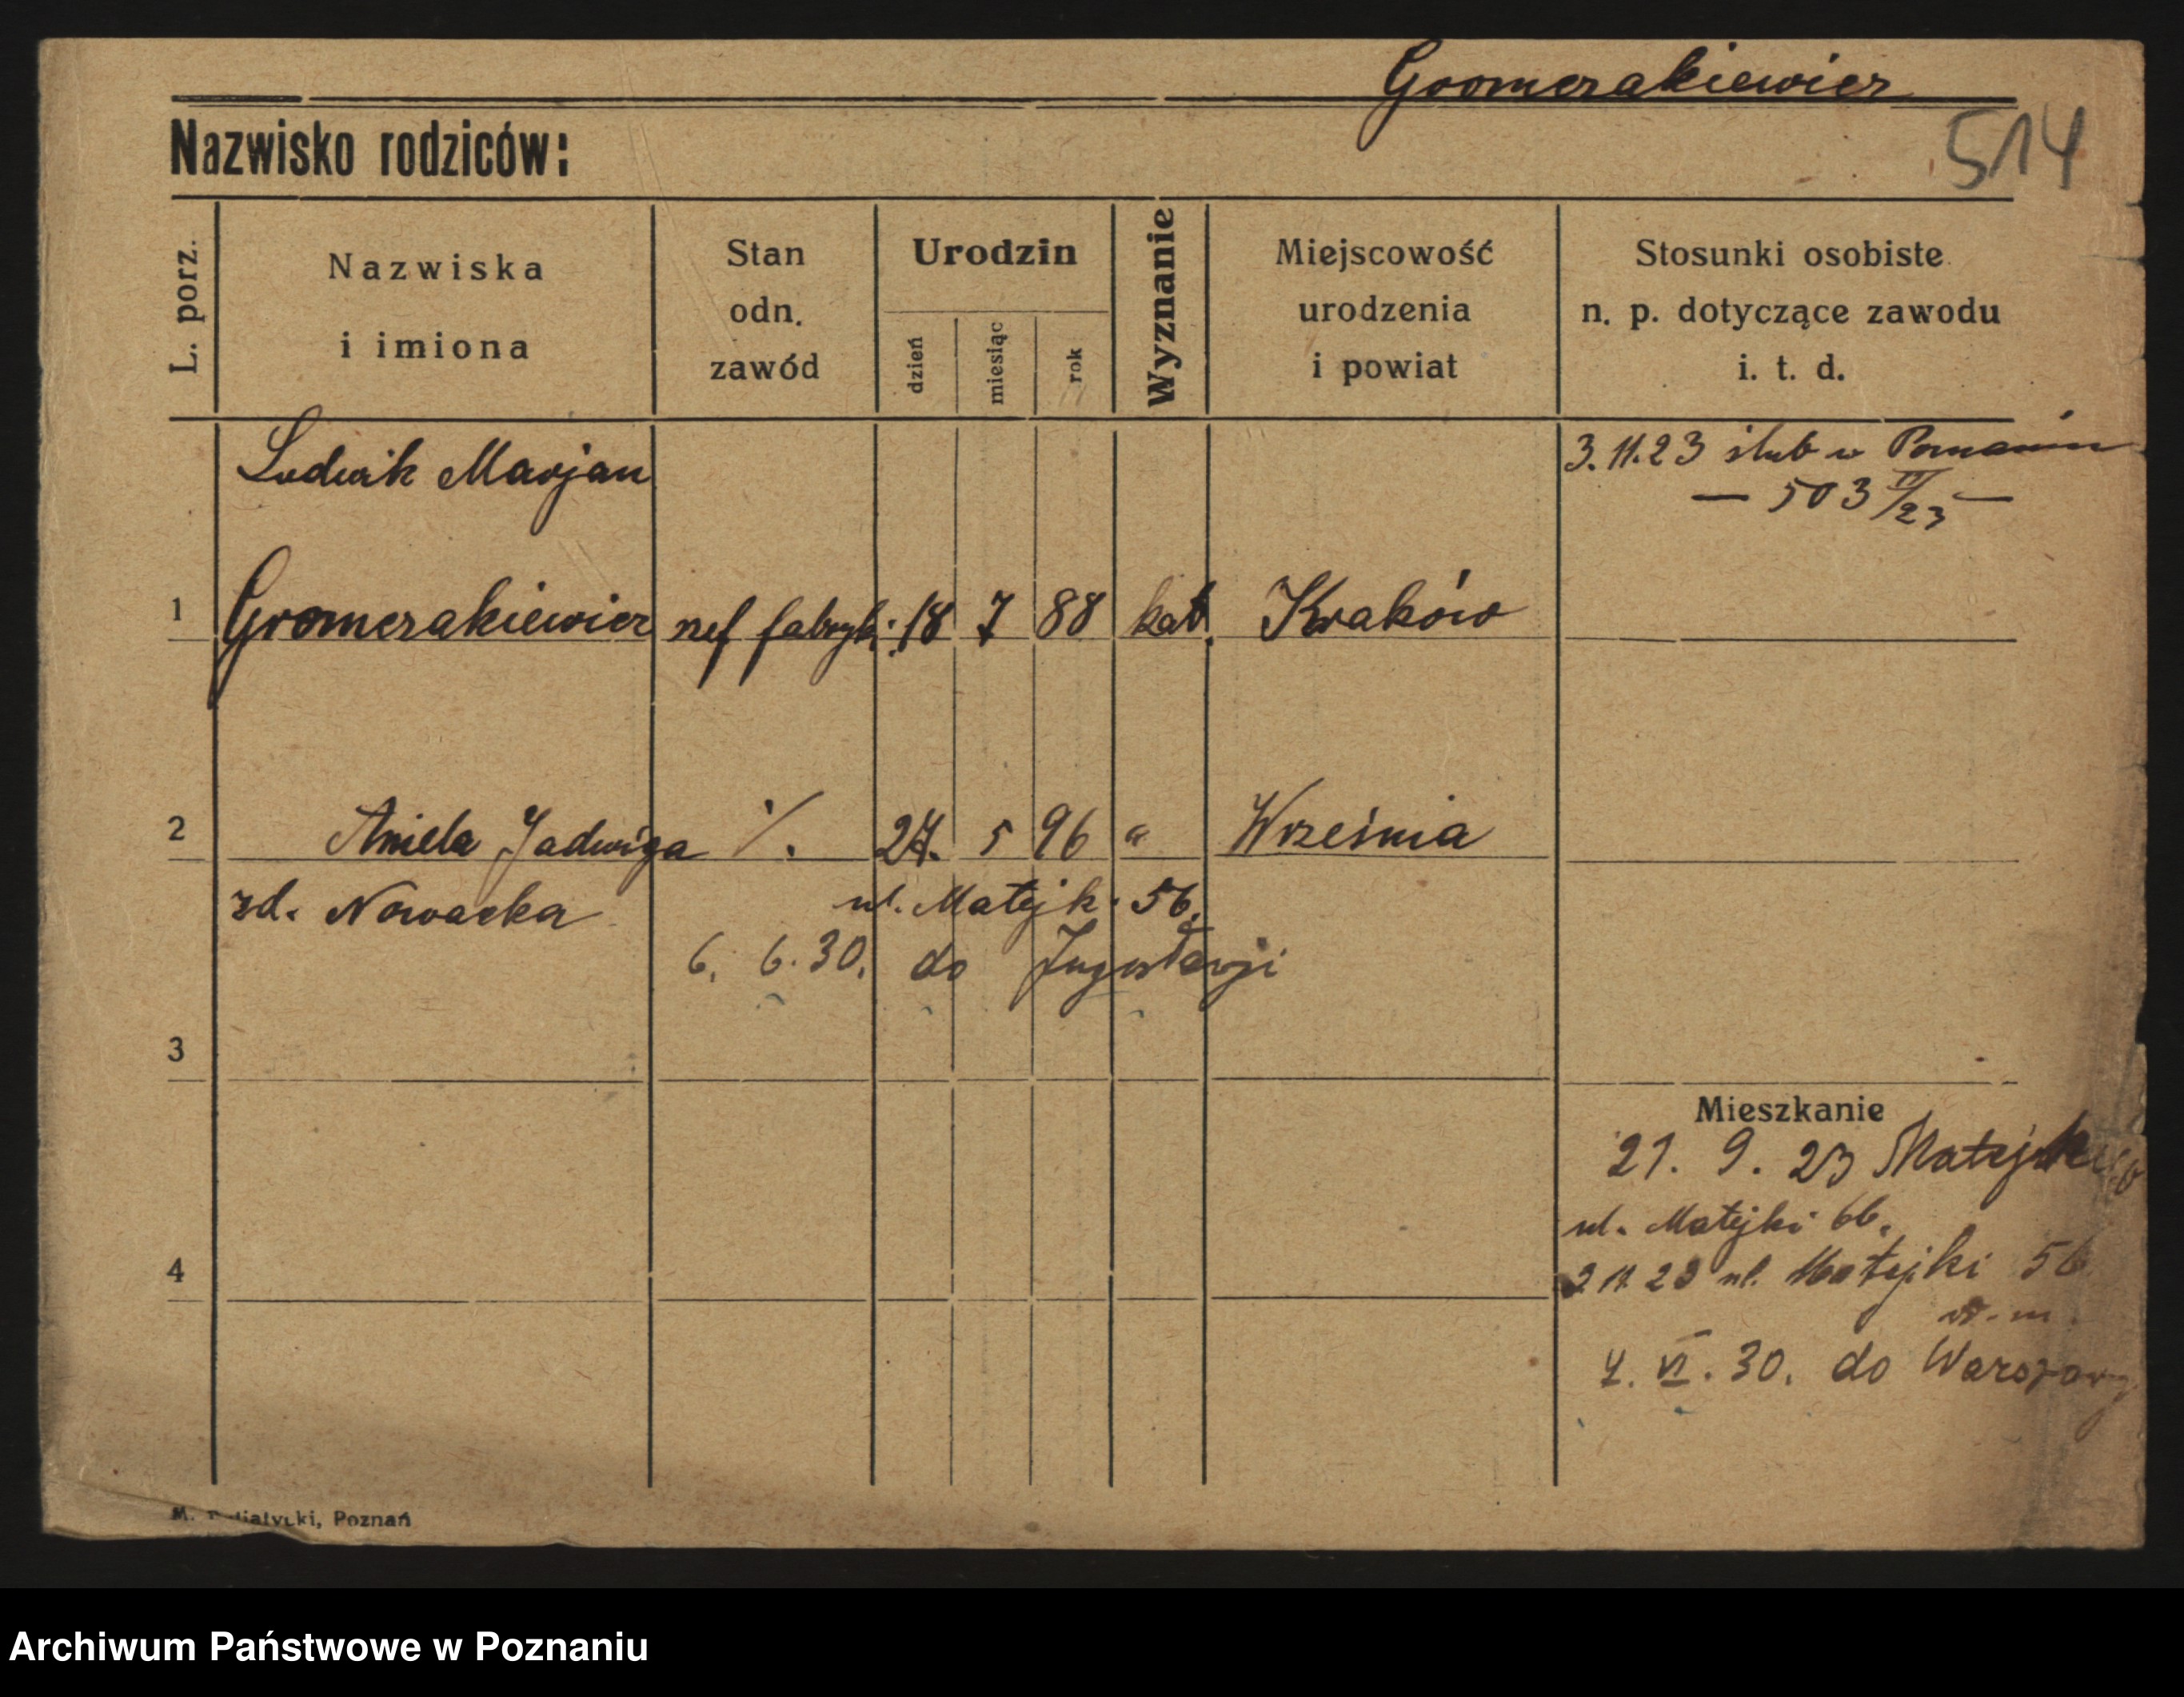 Gromczakiewicz
514
Nazwisko rodziców:
L. porz.
Nazwiska
i imiona
Stan
odn.
zawód
Urodzin
dzień
miesiąc
rok
Wyznanie
Miejscowość
urodzenia
i powiat
Stosunki osobiste
n. p. dotyczące zawodu
i. t. d.
Ludwik Marjan
3.11.23 ślub w Poznaniu
— 503 II/23 —
1 Gromczakiewicz szef fabryk. 18 7 88 kat. Kraków
2 Aniela Jadwiga ·/. 27. 5 96 " Września
zd. Nowacka ul. Matejk. 56.
6. 6. 30. do Jugosławji
3
Mieszkanie
21. 9. 23
ul. Matejki 66.
4
3 11 23 ul. Matejki 56
4. VI. 30. do Warszawy
M. Poznań
Archiwum Państwowe w Poznaniu